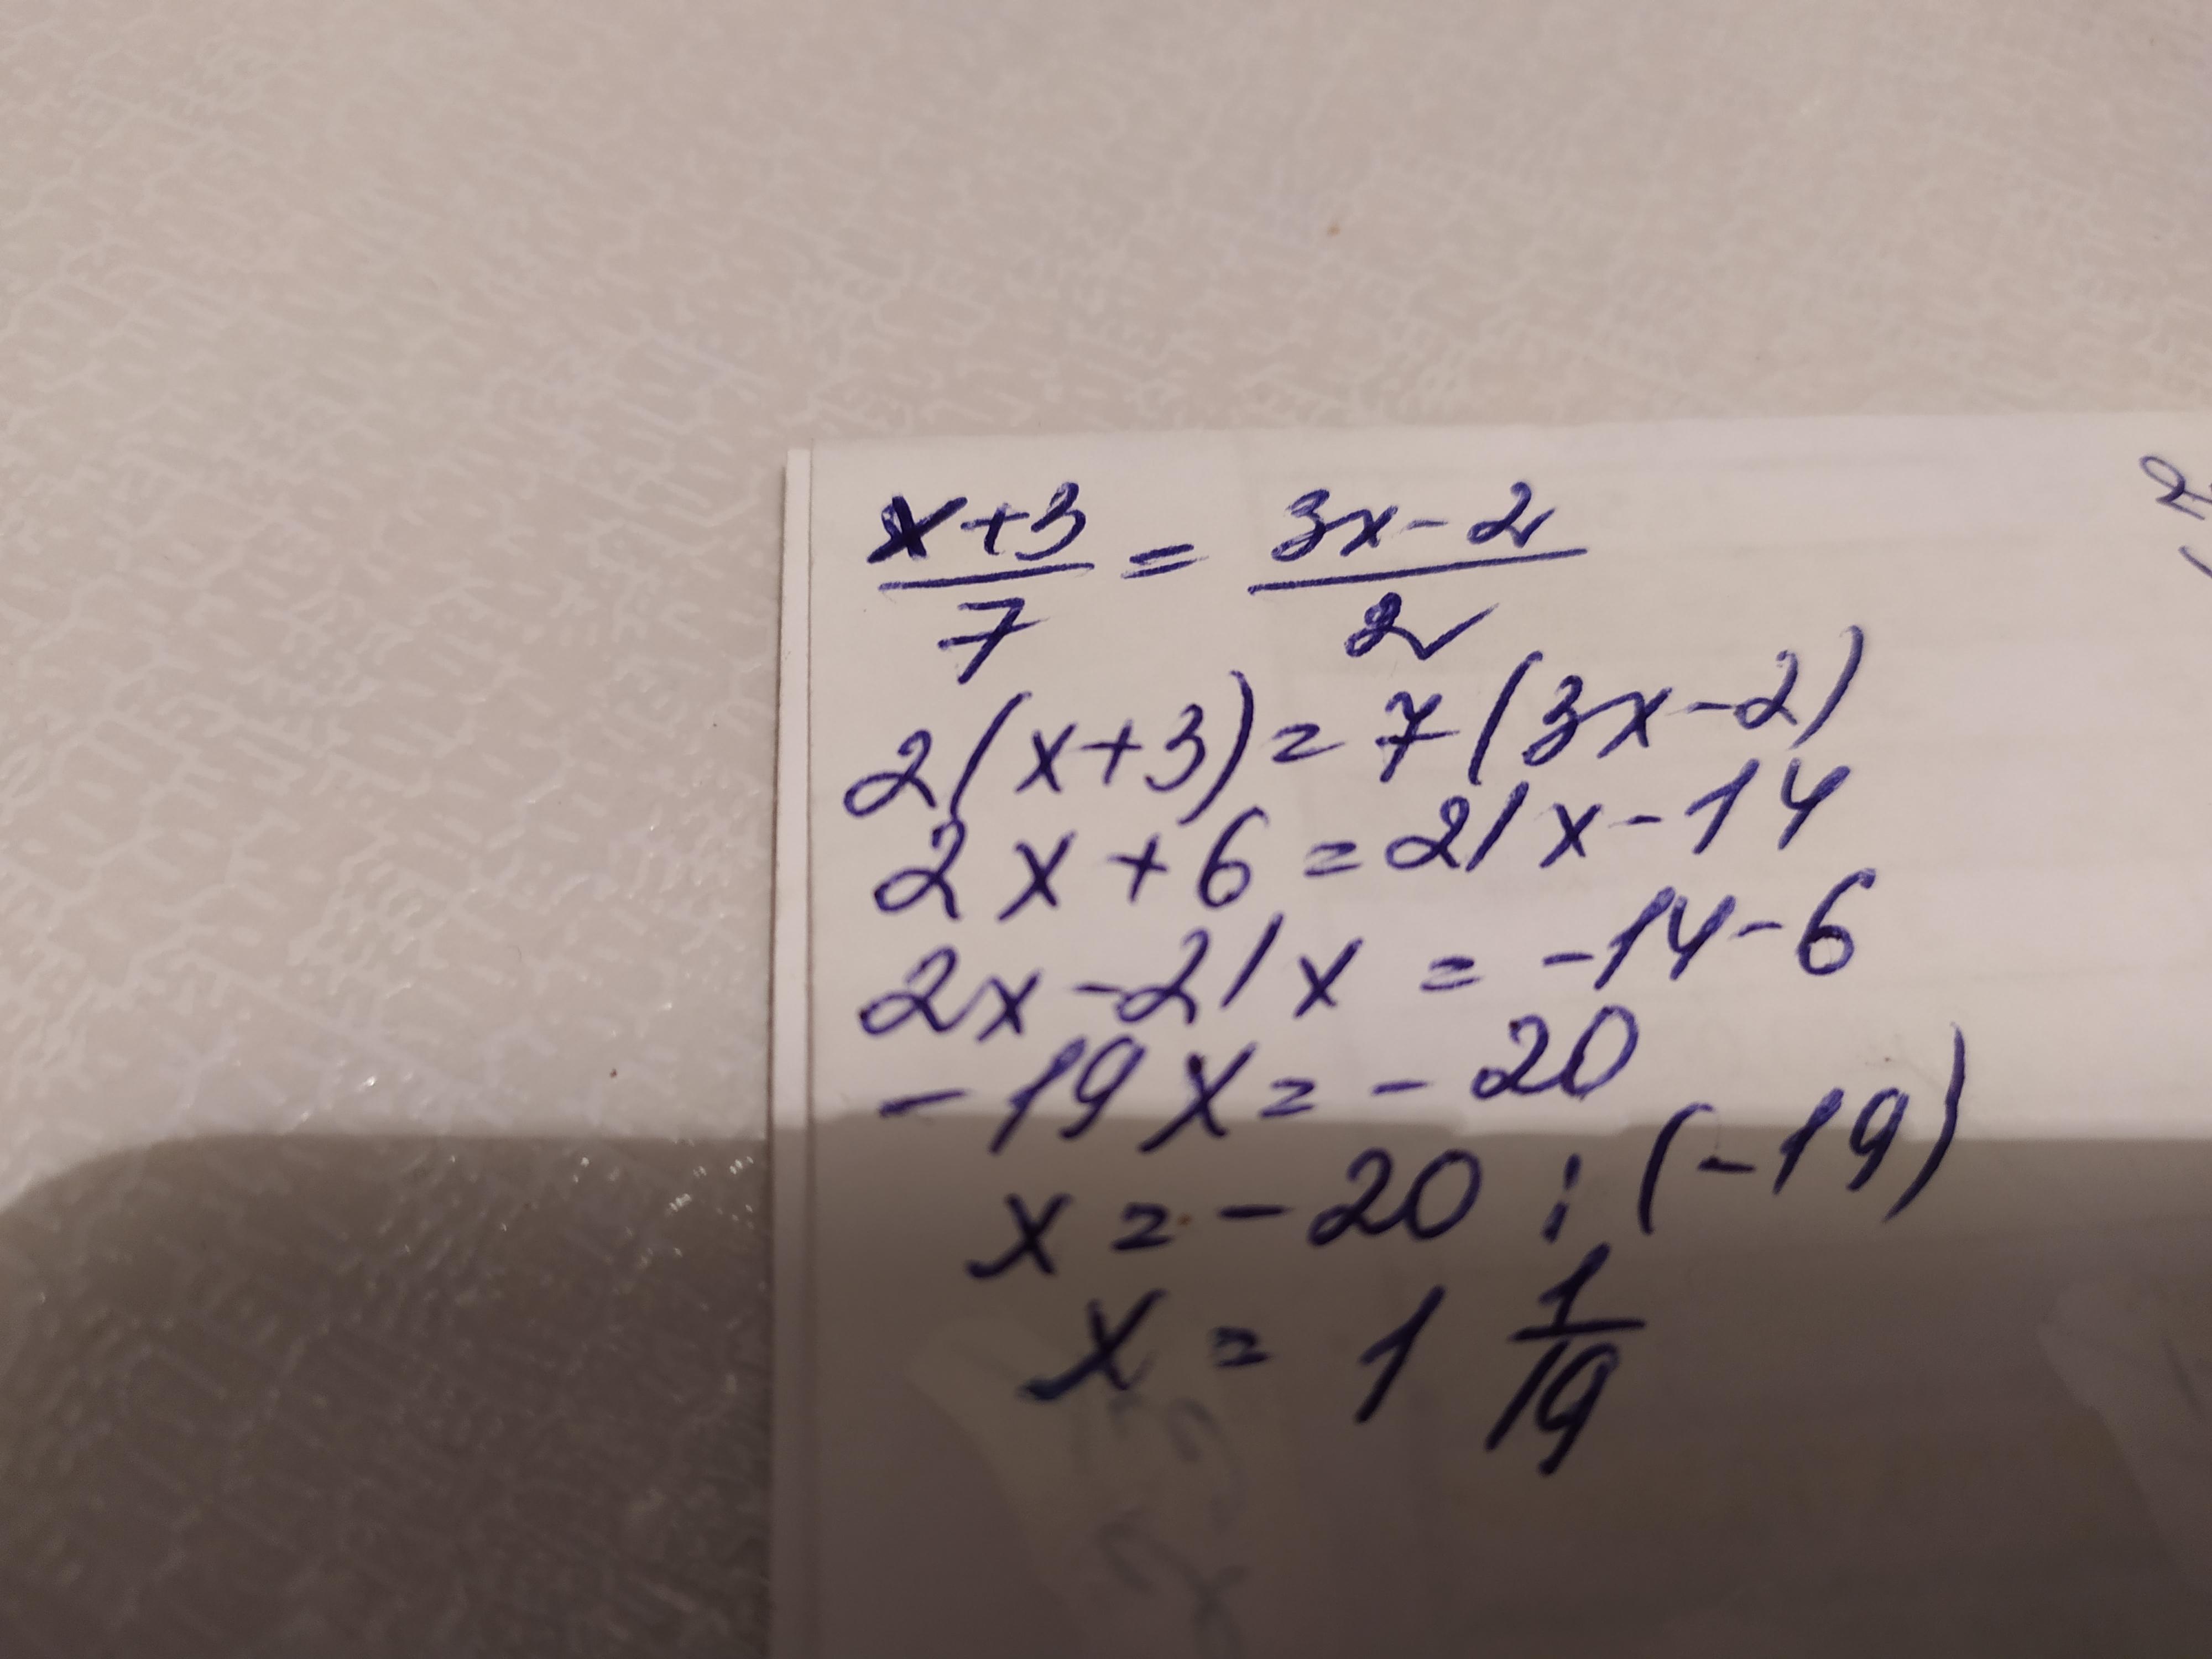 x+3/7 = 3x-2/2
2(x+3)=7(3x-2)
2x+6=21x-14
2x-21x=-14-6
-19x=-20
x=-20:(-19)
x=1 1/19